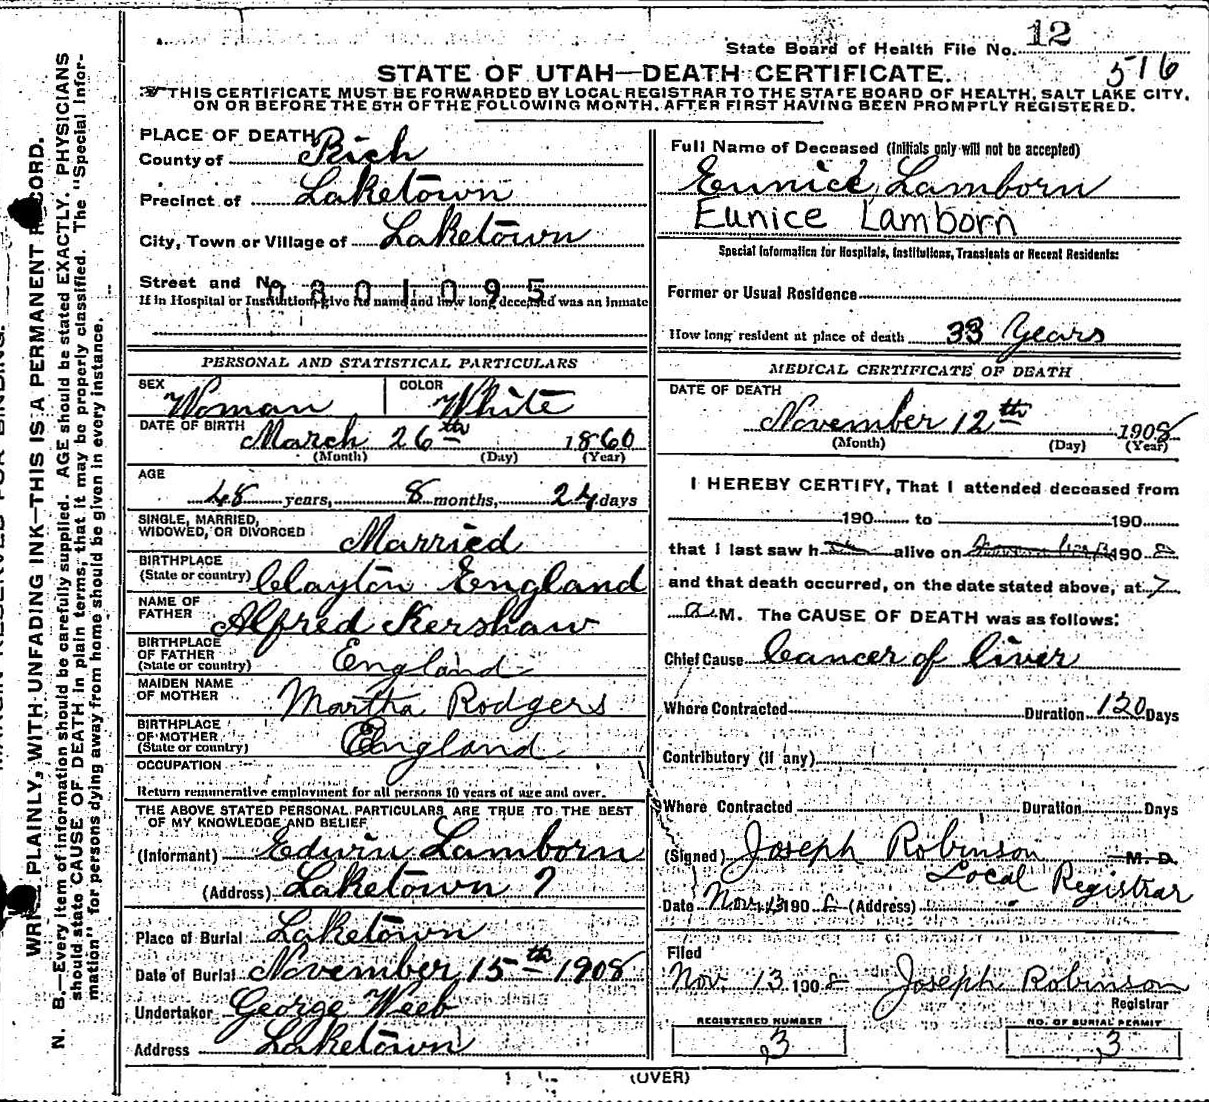 State Board of Health File No. 12
516
STATE OF UTAH—DEATH CERTIFICATE.
THIS CERTIFICATE MUST BE FORWARDED BY LOCAL REGISTRAR TO THE STATE BOARD OF HEALTH, SALT LAKE CITY,
ON OR BEFORE THE 5TH OF THE FOLLOWING MONTH, AFTER FIRST HAVING BEEN PROMPTLY REGISTERED.
PLACE OF DEATH
County of Rich
Precinct of Laketown
City, Town or Village of Laketown
Street and No.
0801095
If in Hospital or Institution, give its name and how long deceased was an inmate
PERSONAL AND STATISTICAL PARTICULARS
SEX Woman COLOR White
DATE OF BIRTH March 26th 1860
(Month) (Day) (Year)
AGE
48 years, 8 months, 24 days
SINGLE, MARRIED,
WIDOWED, OR DIVORCED Married
BIRTHPLACE
(State or country) Clayton England
NAME OF
FATHER Alfred Kershaw
BIRTHPLACE
OF FATHER
(State or country) England
MAIDEN NAME
OF MOTHER Martha Rodgers
BIRTHPLACE
OF MOTHER
(State or country) England
OCCUPATION
Return remunerative employment for all persons 10 years of age and over.
THE ABOVE STATED PERSONAL PARTICULARS ARE TRUE TO THE BEST
OF MY KNOWLEDGE AND BELIEF
(Informant) Edwin Lamborn
(Address) Laketown
Place of Burial Laketown
Date of Burial November 15th 1908
Undertaker George Weeb
Address Laketown
Full Name of Deceased (Initials only will not be accepted)
Eunice Lamborn
Eunice Lamborn
Special Information for Hospitals, Institutions, Transients or Recent Residents:
Former or Usual Residence
How long resident at place of death 33 Years
MEDICAL CERTIFICATE OF DEATH
DATE OF DEATH
November 12th 1908
(Month) (Day) (Year)
I HEREBY CERTIFY, That I attended deceased from
190 to 190
that I last saw h alive on 190 8
and that death occurred, on the date stated above, at 7
a M. The CAUSE OF DEATH was as follows:
Chief Cause Cancer of liver
Where Contracted Duration 120 Days
Contributory (if any)
Where Contracted Duration Days
(Signed) Joseph Robinson M. D.
Local Registrar
Date Nov. 13 190 8 (Address)
Filed
Nov. 13 190 8 Joseph Robinson
Registrar
REGISTERED NUMBER NO. OF BURIAL PERMIT
3 3
(OVER)
WRITE PLAINLY, WITH UNFADING INK—THIS IS A PERMANENT RECORD.
N. B.—Every item of information should be carefully supplied. AGE should be stated EXACTLY. PHYSICIANS
should state CAUSE OF DEATH in plain terms, that it may be properly classified. The "Special Infor-
mation" for persons dying away from home should be given in every instance.